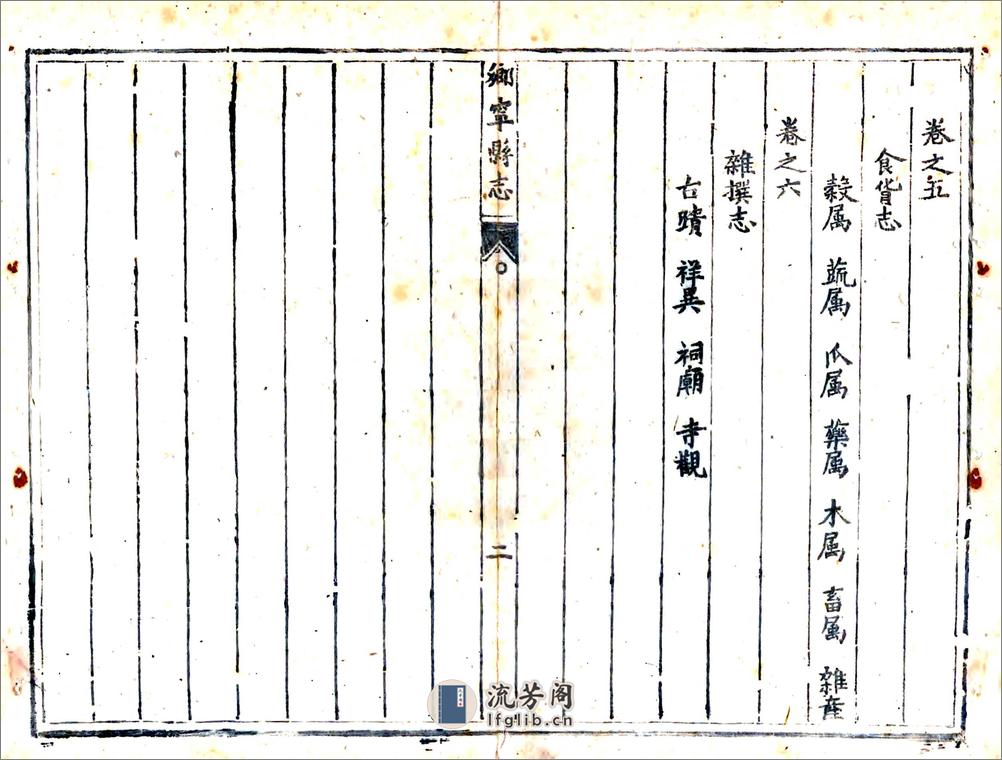 卷之五
食貨志
穀属 蔬属 瓜属 藥属 木属 畜属 雜產
卷之六
雜撰志
古蹟 祥異 祠廟 寺觀
鄉寧縣志 二
流芳阁
lfglib.cn